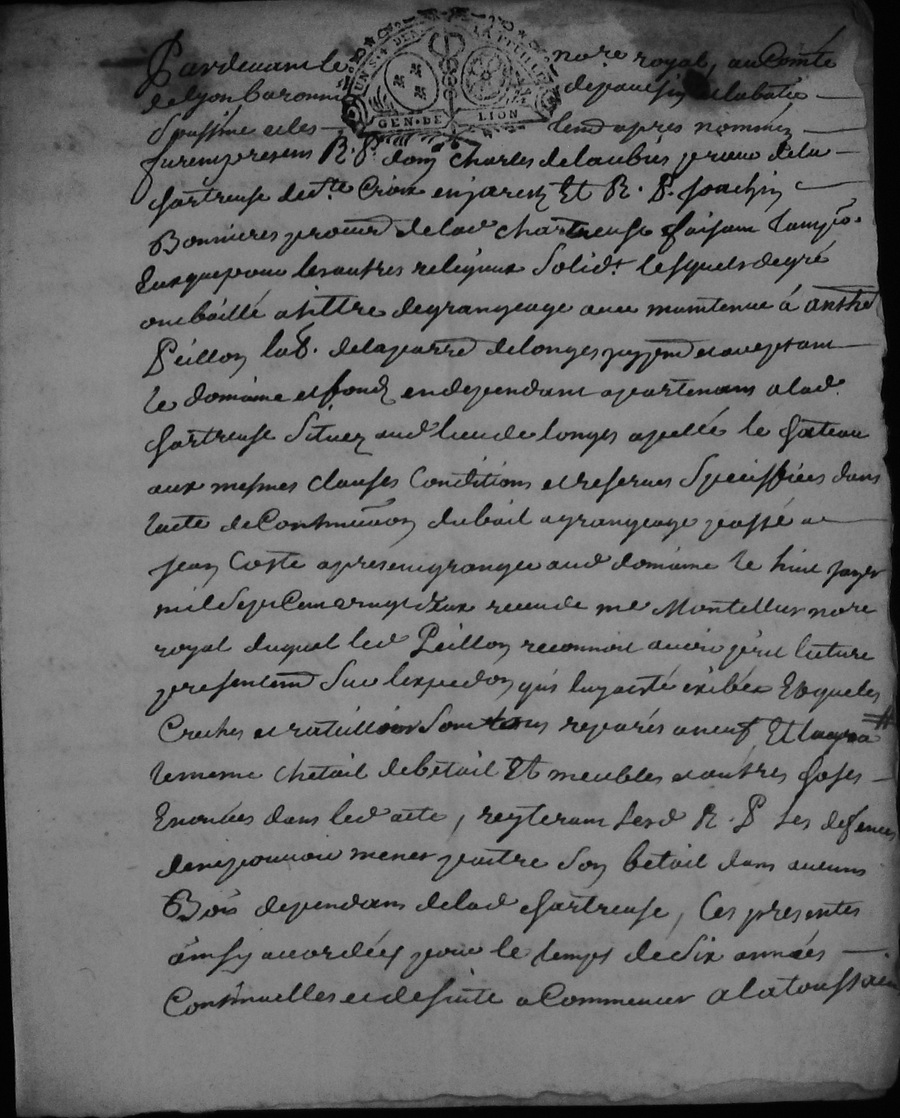 Pardevant le nore royal, au Comté
de lyon baronnie de pavesin et la batie
Soussigné et les tend apres nommés
furent presens R. P. dom Charles delaubier prieur de la
Chartreuse de Ste Croix en jarest Et R. P. Joachin
Bonnieres procur de lad Chartreuse faisant tant po.
Eux que pour les autres religieux Solidt lesquels de gré
ont baillé a tiltre de grangeage avec maintenue à anthe
Peillon lab. de la parre de longes pnt et acceptant
le domaine et fonds en dependant apartenans a lad.
Chartreuse Situez aud lieu de longes apellé le Chateau
aux mesmes clauses Conditions et reserves Speciffiées dans
lacte de Continuaon du bail a grangeage passé a
Jean Coste a present granger aud domaine le huit janvr
mil Sept Cent vingt deux receu de me Montellier nore
royal duquel led Peillon reconnoit avoir pris lecture
presentemt Sur lexpedon qui luy a esté exibée Et que les
Creches et rateliers Sont tous reparés a neuf, Et
le meme Chetail de betail Et meubles et autres choses
Enoncées dans led acte, reyterant lesd R. P. les defences
de ne pouvoir mener paitre Son betail dans aucuns
Bois dependans de lad Chartreuse, Ces presentes
ainsy accordées pour le temps de Six années
Continuelles et de Suitte a Commencer a la toussaint
GEN. DE LION